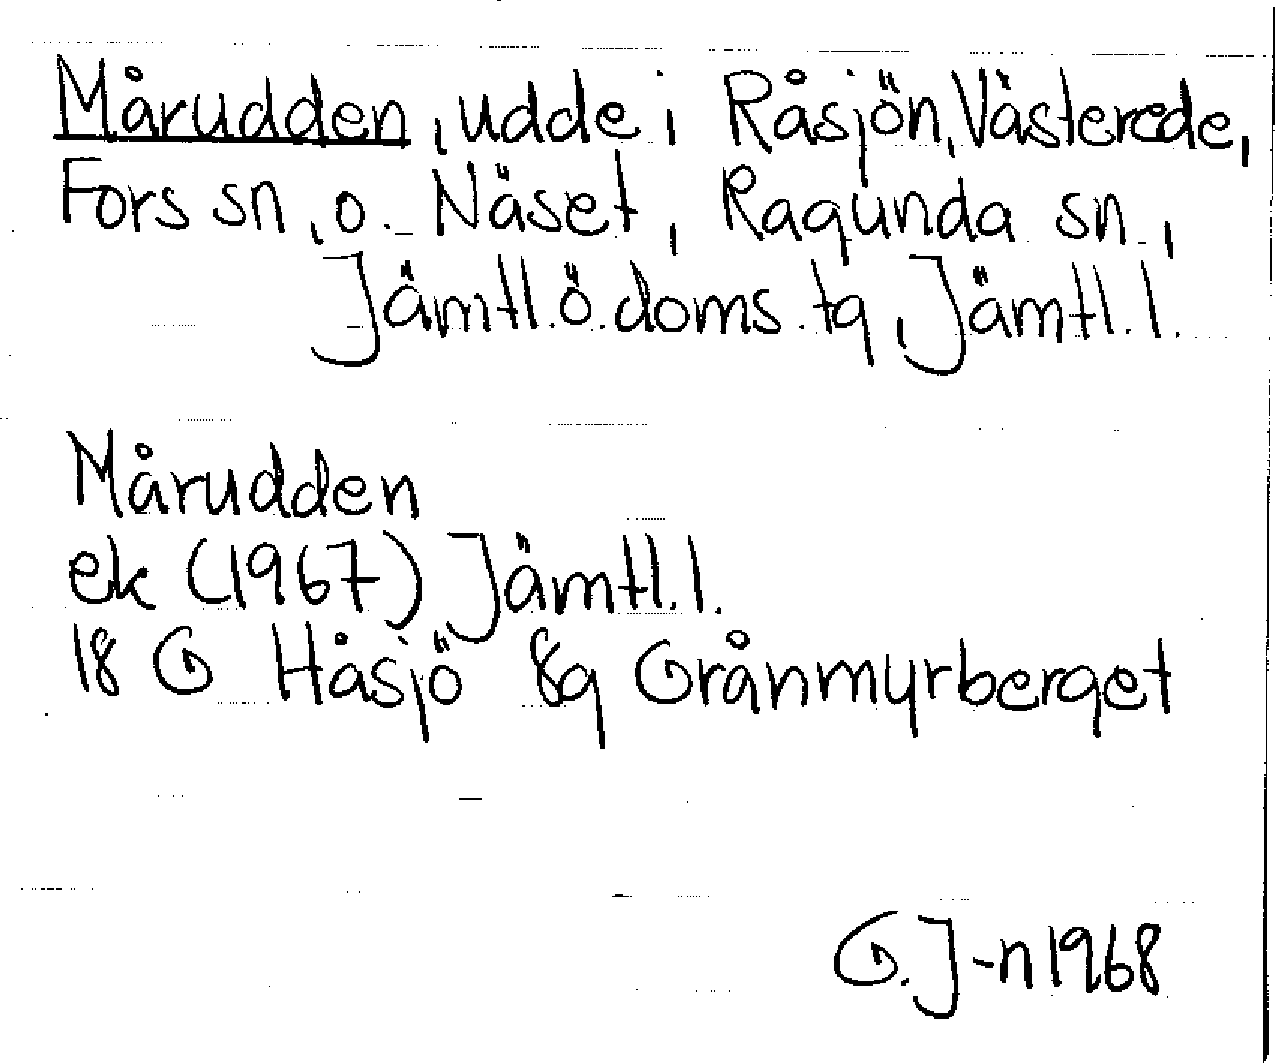 Mårudden, udde i Råsjön, Västerede,
Fors sn, o. Näset, Ragunda sn.,
Jämtl. ö. doms. tg, Jämtl. l.
Mårudden
ek (1967) Jämtl. l.
18 G Håsjö 8g Grånmyrberget
G. J-n 1968